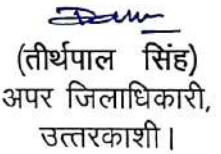 (तीर्थपाल सिंह)
अपर जिलाधिकारी,
उत्तरकाशी।